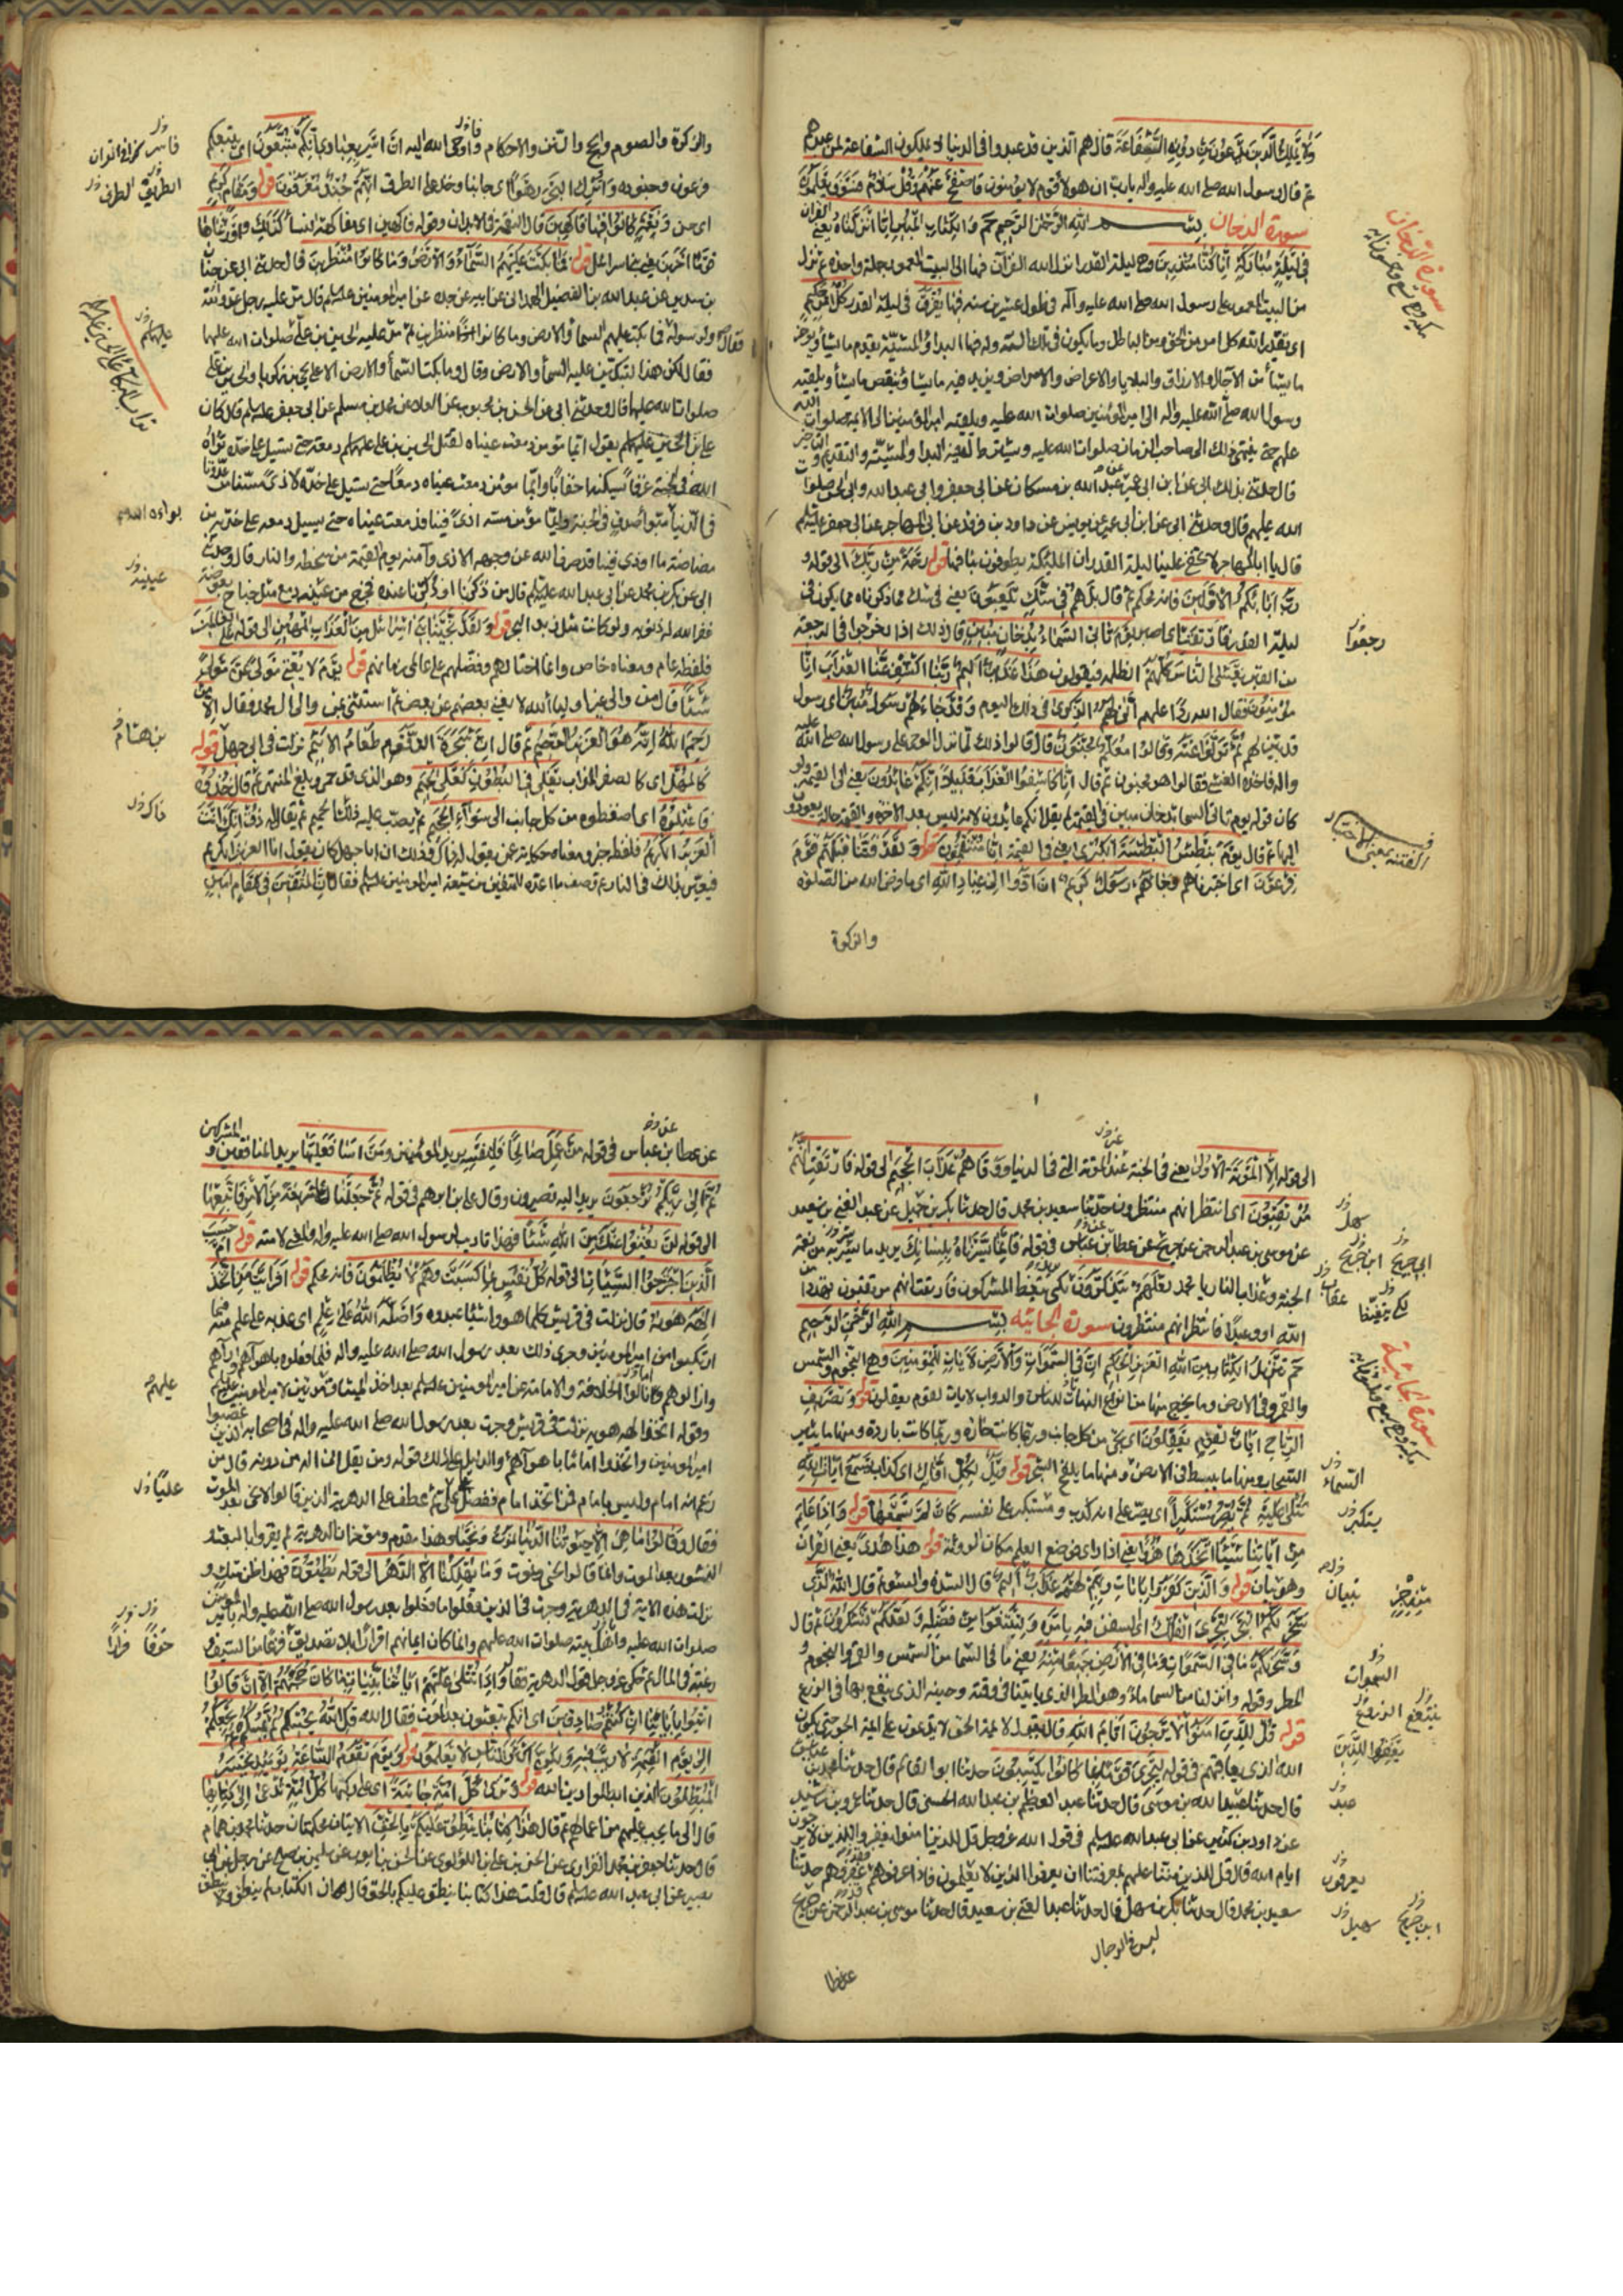 ولا يملك الذين يدعون من دونه الشفاعة قال هم الذين قد عبدوا في الدنيا لا يملكون الشفاعة لمن عبدهم
ثم قال رسول الله صلى الله عليه واله يا رب ان هولاء قوم لا يؤمنون فاصفح عنهم وقل سلام فسوف يعلمون
سورة الدخان بسم الله الرحمن الرحيم حم والكتاب المبين انا انزلناه يعني القران
في ليلة مباركة انا كنا منذرين وهي ليلة القدر انزل الله القرآن فيها الى البيت المعمور جملة واحدة ثم نزل
من البيت المعمور على رسول الله صلى الله عليه وآله في طول عشرين سنة فيها يفرق في ليلة القدر كل امر حكيم
اي يقدر الله كل امر من الحق ومن الباطل وما يكون في تلك السنة وله فيها البداء والمشية يقدم ما يشاء ويؤخر
ما يشاء من الآجال والارزاق والبلايا والاعراض والامراض ويزيد فيه ما يشاء وينقص ما يشاء ويلقيه
رسول الله صلى الله عليه واله الى امير المؤمنين صلوات الله عليه ويلقيه امير المؤمنين الى الائمة صلوات الله
عليهم حتى ينتهي ذلك الى صاحب الزمان صلوات الله عليه ويشترط له فيه البداء والمشية والتقديم والتاخير
قال حدثني بذلك ابي عن ابن ابي عمير عن عبد الله بن مسكان عن ابي جعفر وابي عبد الله وابي الحسن صلوات
الله عليهم قال وحدثني ابي عن ابن ابي عمير عن يونس عن داود بن فرقد عن ابي المهاجر عن ابي جعفر عليه السلم
قال يا ابا المهاجر لا يخفى علينا ليلة القدر ان الملئكة يطوفون بنا فيها قوله رحمة من ربك الى قوله و
رب ابائكم الاولين فانه محكم ثم قال بل هم في شك يلعبون يعني في شك مما ذكرناه مما يكون في
ليلة القدر فارتقب اي اصبر يوم تاتي السماء بدخان مبين قال ذلك اذا خرجوا في الرجعة
من القبر يغشى الناس كلهم الظلمة فيقولون هذا عذاب اليم ربنا اكشف عنا العذاب انا
مؤمنون فقال الله ردا عليهم انى لهم الذكرى في ذلك اليوم وقد جاءهم رسول مبين اي رسول
قد تبين لهم ثم تولوا عنه وقالوا معلم مجنون قال قالوا ذلك لما نزل الوحي على رسول الله صلى الله عليه
واله فاخذه الغشي فقالوا هو مجنون ثم قال انا كاشفوا العذاب قليلا انكم عائدون يعني الى القيمة ولو
كان قوله يوم تاتي السماء بدخان مبين في القيمة لم يقل انكم عائدون لانه ليس بعد الاخرة والقيمة حالة يعودون
اليها ثم قال يوم نبطش البطشة الكبرى يعني في القيمة انا منتقمون قوله ولقد فتنا قبلهم قوم
فرعون اي اختبرناهم وجاءهم رسول كريم ان ادوا الي عباد الله اي ما فرض الله من الصلوة
والزكوة
سورة الدخان
رجعوا
الفتنة بمعنى الاختبار
والزكوة والصوم والحج والسنن والاحكام فاوحى الله اليه ان اسر بعبادي ليلا انكم متبعون اي يتبعكم
فرعون وجنوده واترك البحر رهوا اي جانبا وخذ على الطرف انهم جند مغرقون قوله ومقام كريم
اي حسن ونعمة كانوا فيها فاكهين قال النعمة في الابدان وقوله فاكهين اي مفاكهة النساء كذلك واورثناها
قوما آخرين يعني بني اسرائيل قوله فما بكت عليهم السماء والارض وما كانوا منظرين قال حدثني ابي عن حنان
بن سدير عن عبد الله بن الفضيل الهمداني عن ابيه عن جده عن امير المومنين عليه السلم قال مر عليه رجل عدو لله
ولرسوله فقال فما بكت عليهم السماء والارض وما كانوا منظرين ثم مر عليه الحسين بن علي صلوات الله عليهما
فقال لكن هذا لتبكين عليه السماء والارض وقال وما بكت السماء والارض الا على يحيى بن زكريا والحسين بن علي
صلوات الله عليهما قال وحدثني ابي عن الحسن بن محبوب عن العلاء عن محمد بن مسلم عن ابي جعفر عليه السلم قال كان
علي بن الحسين عليهما السلم يقول ايما مؤمن دمعت عيناه لقتل الحسين بن علي عليهما السلم دمعة حتى تسيل على خده بوأه
الله في الجنة غرفا يسكنها احقابا وايما مؤمن دمعت عيناه دمعا حتى تسيل على خده لاذى مسنا من عدونا
في الدنيا بوأه مبوأ صدق في الجنة وايما مؤمن مسه اذى فينا فدمعت عيناه حتى يسيل دمعه على خديه من
مضاضة ما اوذي فينا صرف الله عن وجهه الاذى وآمنه يوم القيمة من سخطه والنار قال وحدثني
ابي عن بكر بن محمد عن ابي عبد الله عليه السلم قال من ذكرنا او ذكرنا عنده فخرج من عينه دمع مثل جناح بعوضة
غفر الله له ذنوبه ولو كانت مثل زبد البحر قوله ولقد نجينا بني اسرائيل من العذاب المهين الى قوله على العالمين
فلفظه عام ومعناه خاص وانما اختارهم وفضلهم على عالمي زمانهم قوله يوم لا يغني مولى عن مولى
شيئا قال من والى غير اولياء الله لا يغني بعضهم عن بعض ثم استثنى من والى آل محمد فقال الا من
رحم الله انه هو العزيز الرحيم ثم قال ان شجرة الزقوم طعام الاثيم نزلت في ابي جهل قوله
كالمهل اي كالصفر المذاب يغلي في البطون كغلي الحميم وهو الذي قد حمي وبلغ المنتهى ثم قال خذوه
فاعتلوه اي اضغطوه من كل جانب الى سواء الجحيم ثم يصب عليه ذلك الحميم ثم يقال له ذق انك انت
العزيز الكريم فلفظه خبر ومعناه حكاية عمن يقول له ذلك وذلك ان ابا جهل كان يقول انا العزيز الكريم
فيعير بذلك في النار ثم وصف ما اعده للمتقين من شيعة امير المومنين عليه السلم فقال ان المتقين في مقام امين
الطريق الطرف
عليهما
عينيه
بن هشام
الى قوله الا الموتة الاولى يعني في الجنة غير الموتة التي في الدنيا ووقاهم عذاب الجحيم الى قوله فارتقب انهم
مرتقبون اي انتظر انهم منتظرون حدثنا سعيد بن محمد قال حدثنا بكر بن سهل عن عبد الغني بن سعيد
عن موسى بن عبد الرحمن عن جريح عن عطا عن ابن عباس في قوله فانما يسرناه بلسانك يريد ما يسر به من نعمة
الجنة وعذاب النار يا محمد لعلهم يتذكرون لكي يتعظ المشركون فارتقب انهم مرتقبون تهدد من
الله ووعيدا فانتظر انهم منتظرون سورة الجاثية بسم الله الرحمن الرحيم
حم تنزيل الكتاب من الله العزيز الحكيم ان في السموات والارض لايات للمؤمنين وهي النجوم والشمس
والقمر وفي الارض وما يخرج منها من انواع النبات للناس والدواب لايات لقوم يعقلون قوله وتصريف
الرياح ايات لقوم يعقلون اي تجيء من كل جانب وربما كانت حارة وربما كانت باردة ومنها ما يثير
السحاب ومنها ما يبسط في الارض ومنها ما يلقح الشجر قوله ويل لكل افاك اي كذاب يسمع ايات الله
تتلى عليه ثم يصر مستكبرا اي يصر على انه كذب ويستكبر على نفسه كان لم يسمعها قوله واذا علم
من اياتنا شيئا اتخذها هزوا يعني اذا راى فوضع العلم مكان الرؤية قوله هذا هدى يعني القرآن
وهو بيان قوله والذين كفروا بايات ربهم لهم عذاب اليم قال الشدة والسوء ثم قال الله الذي
سخر لكم البحر لتجري الفلك اي السفن فيه بامره ولتبتغوا من فضله ولعلكم تشكرون ثم قال
وسخر لكم ما في السموات وما في الارض جميعا منه يعني ما في السماء من الشمس والقمر والنجوم و
المطر وقوله وانزلنا من السماء ماء وهو المطر الذي ياتينا في وقته وحينه الذي ينفع به في الزرع
قوله قل للذين امنوا لا يرجون ايام الله قال يقول لائمة الحق لا يدعون على ائمة الجور حتى يكون
الله الذي يعاقبهم في قوله ليجزي قوما بما كانوا يكسبون حدثنا ابو القاسم قال حدثنا محمد بن عباس
قال حدثنا عبيد الله بن موسى قال حدثنا عبد العظيم بن عبد الله الحسني قال حدثنا عمرو بن رشيد
عن داود بن كثير عن ابي عبد الله عليه السلم في قول الله عز وجل قل للذين امنوا يغفروا للذين لا يرجون
ايام الله قال قل للذين مننا عليهم بمعرفتنا ان يعرفوا الذين لا يعلمون فاذا عرفوهم غفروا لهم حدثنا
سعيد بن محمد قال حدثنا بكر بن سهل قال حدثنا عبد الغني بن سعيد قال حدثنا موسى بن عبد الرحمن عن جريح
ليس في الرجال
عن عطا
سورة الجاثية
السماء
تبيان
السموات
يعرفون
عن عطا عن ابن عباس في قوله من عمل صالحا فلنفسه يريد المؤمنين ومن اساء فعليها يريد المنافقين والمشركين
ثم الى ربكم ترجعون يريد اليه تصيرون وقال علي بن ابرهيم في قوله ثم جعلناك على شريعة من الامر فاتبعها
الى قوله لن يغنوا عنك من الله شيئا فهذا تاديب لرسول الله صلى الله عليه واله والمعنى لامته قوله ام حسب
الذين اجترحوا السيئات الى قوله كل نفس بما كسبت وهم لا يظلمون فانه محكم قوله افرأيت من اتخذ
الهه هويه قال نزلت في قريش كلما هووا شيئا عبدوه واضله الله على علم اي عذبه على علم منه فيما
ارتكبوا من امير المؤمنين وجرى ذلك بعد رسول الله صلى الله عليه واله فيما فعلوه باهوائهم وآرائهم
وازالوهم وامالوا الخلافة والامامة عن امير المؤمنين عليه السلم بعد اخذ الميثاق مرتين لامير المؤمنين عليه السلم
وقوله اتخذ الهه هويه نزلت في قريش وجرت بعد رسول الله صلى الله عليه واله في اصحابه الذين غصبوا
امير المؤمنين واتخذوا اماما باهوائهم والدليل على ذلك قوله ومن يقل منهم اني اله من دونه قال من
زعم انه امام وليس بامام فمن اتخذ امام ففضله على علي ثم عطف على الدهرية الذين قالوا لا نحيى بعد الموت
فقال وقالوا ما هي الا حيوتنا الدنيا نموت ونحيى وهذا مقدم وموخر لان الدهرية لم يقروا بالبعث ولا
النشور بعد الموت وانما قالوا نحيى ونموت وما يهلكنا الا الدهر الى قوله يظنون فهذا ظن شك و
نزلت هذه الاية في الدهرية وجرت في الذين فعلوا ما فعلوا بعد رسول الله صلى الله عليه واله بامير المؤمنين
صلوات الله عليه واهل بيته صلوات الله عليهم وانما كان ايمانهم اقرارا بلا تصديق فرقا من السيف و
رغبة في المال ثم حكى عز وجل قول الدهرية فقال واذا تتلى عليهم اياتنا بينات ما كان حجتهم الا ان قالوا
ائتوا بابائنا ان كنتم صادقين اي انكم تبعثون بعد الموت فقال الله قل الله يحييكم ثم يميتكم ثم يجمعكم
الى يوم القيمة لا ريب فيه ولكن اكثر الناس لا يعلمون قوله ويوم تقوم الساعة يومئذ يخسر
المبطلون الذين ابطلوا دين الله قوله وترى كل امة جاثية اي على ركبها كل امة تدعى الى كتابها
قال الى ما يجب عليهم من اعمالهم ثم قال هذا كتابنا ينطق عليكم بالحق الايتان محكمتان حدثنا محمد بن همام
قال حدثنا جعفر بن محمد الفزاري عن الحسن بن علي اللؤلؤي عن الحسن بن ايوب عن سليمن بن صالح عن رجل عن ابي
بصير عن ابي عبد الله عليه السلم قال قلت هذا كتابنا ينطق عليكم بالحق قال ان الكتاب لم ينطق ولا ينطق
عليهم
عليا
خوفا